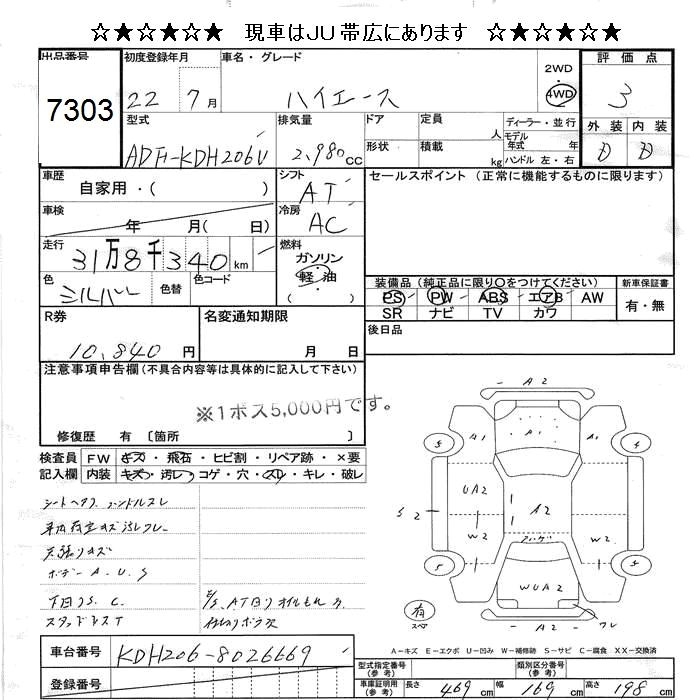 ☆★☆★☆ 現車はJU帯広にあります ☆★☆★☆
出品番号 初度登録年月 車名・グレード 2WD 4WD 評価点
7303 22 7月 ハイエース 3
型式 排気量 ドア 定員 人 ディーラー・並行 外装 内装
ADF-KDH206V 2,980cc 形状 積載 kg モデル年式 年 ハンドル 左・右 D D
車歴 自家用・( ) シフト AT セールスポイント (正常に機能するものに限ります)
車検 年 月( 日) 冷房 AC
走行 31万8千340km 燃料 ガソリン 軽油
色 シルバー 色替 色コード 装備品 (純正品に限り○をつけてください) 新車保証書
PS PW ABS エアB AW 有・無
SR ナビ TV カワ
R券 10,840円 名変通知期限 月 日 後日品
注意事項申告欄 (不具合内容等は具体的に記入して下さい)
※1ボス5,000円です。
修復歴 有 〔箇所 〕
検査員 FW キズ・飛石・ヒビ割・リペア跡・×要
記入欄 内装 キズ・汚レ・コゲ・穴・スレ・キレ・破レ
シートヘタリ ハンドルスレ
天張りキズ
ボデー A.U.S
下回りS.C.
スタッドレスT
A2
A1 A1
UA2 A2
S2 W2 W2
WUA2
A2 ワレ
有
スペア
A-キズ E-エクボ U-凹み W-補修跡 S-サビ C-腐食 XX-交換済
車台番号 KDH206-8026669
型式指定番号 (参考) 類別区分番号 (参考)
登録番号 車庫証明用 (参考) 長さ 469cm 幅 169cm 高さ 198cm